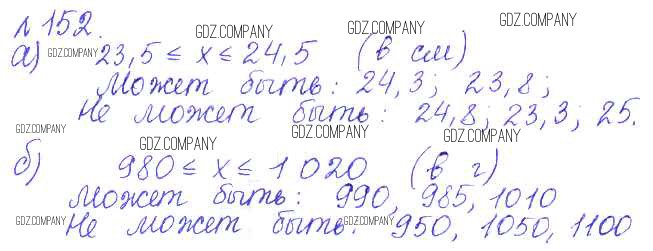 № 152.
GDZ.COMPANY GDZ.COMPANY
а) GDZ.COMPANY 23,5 ≤ x ≤ 24,5 (в см) GDZ.COMPANY
Может быть: 24,3; 23,8;
Не может быть: 24,8; 23,3; 25.
GDZ.COMPANY GDZ.COMPANY GDZ.COMPANY GDZ.COMPANY
б) 980 ≤ x ≤ 1 020 (в г)
Может быть: 990, 985, 1010
GDZ.COMPANY Не может быть: GDZ.COMPANY 950, 1050, 1100
GDZ.COMPANY